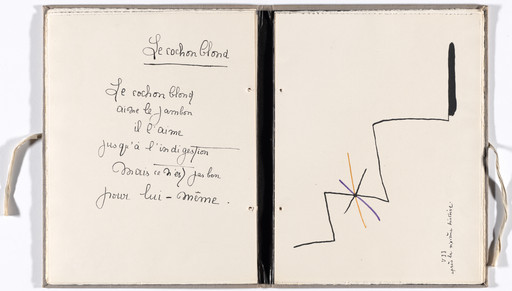 Le cochon blond
Le cochon blond
aime le jambon
il l'aime
jusqu'à l'indigestion
Mais ce n'est pas bon
pour lui-même.
VII
après la même histoire